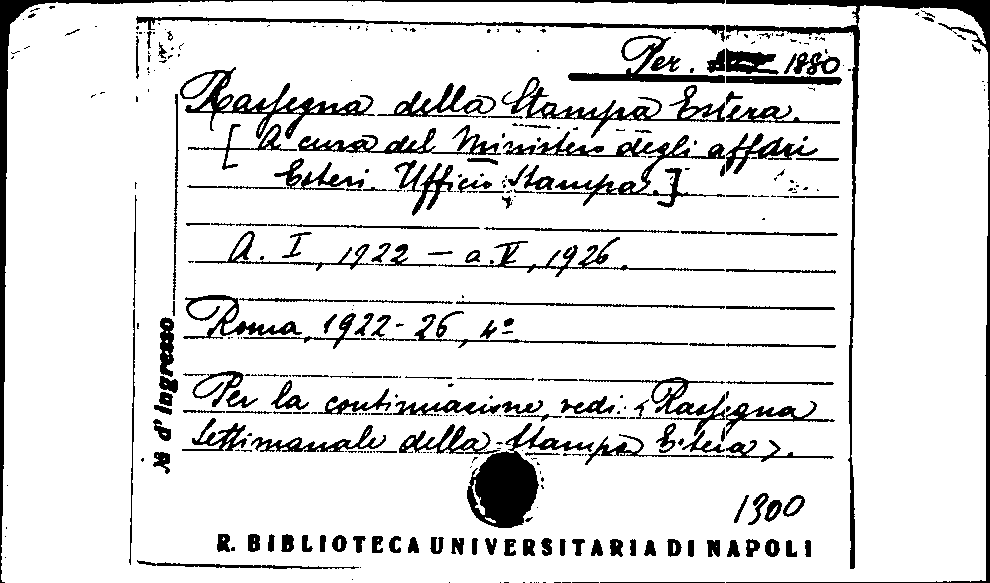 Per. 1880
Rassegna della Stampa Estera.
[A cura del Ministero degli affari
Esteri. Ufficio Stampa.]
A. I, 1922 – a. V, 1926.
Roma, 1922-26, 4º
Per la continuazione, vedi: «Rassegna
Settimanale della Stampa Estera».
1300
N d'Ingresso
R. BIBLIOTECA UNIVERSITARIA DI NAPOLI